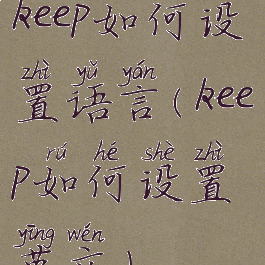 keep如何设
zhì yǔ yán
置语言(kee
rú hé shè zhì
p如何设置
yīng wén
英文)